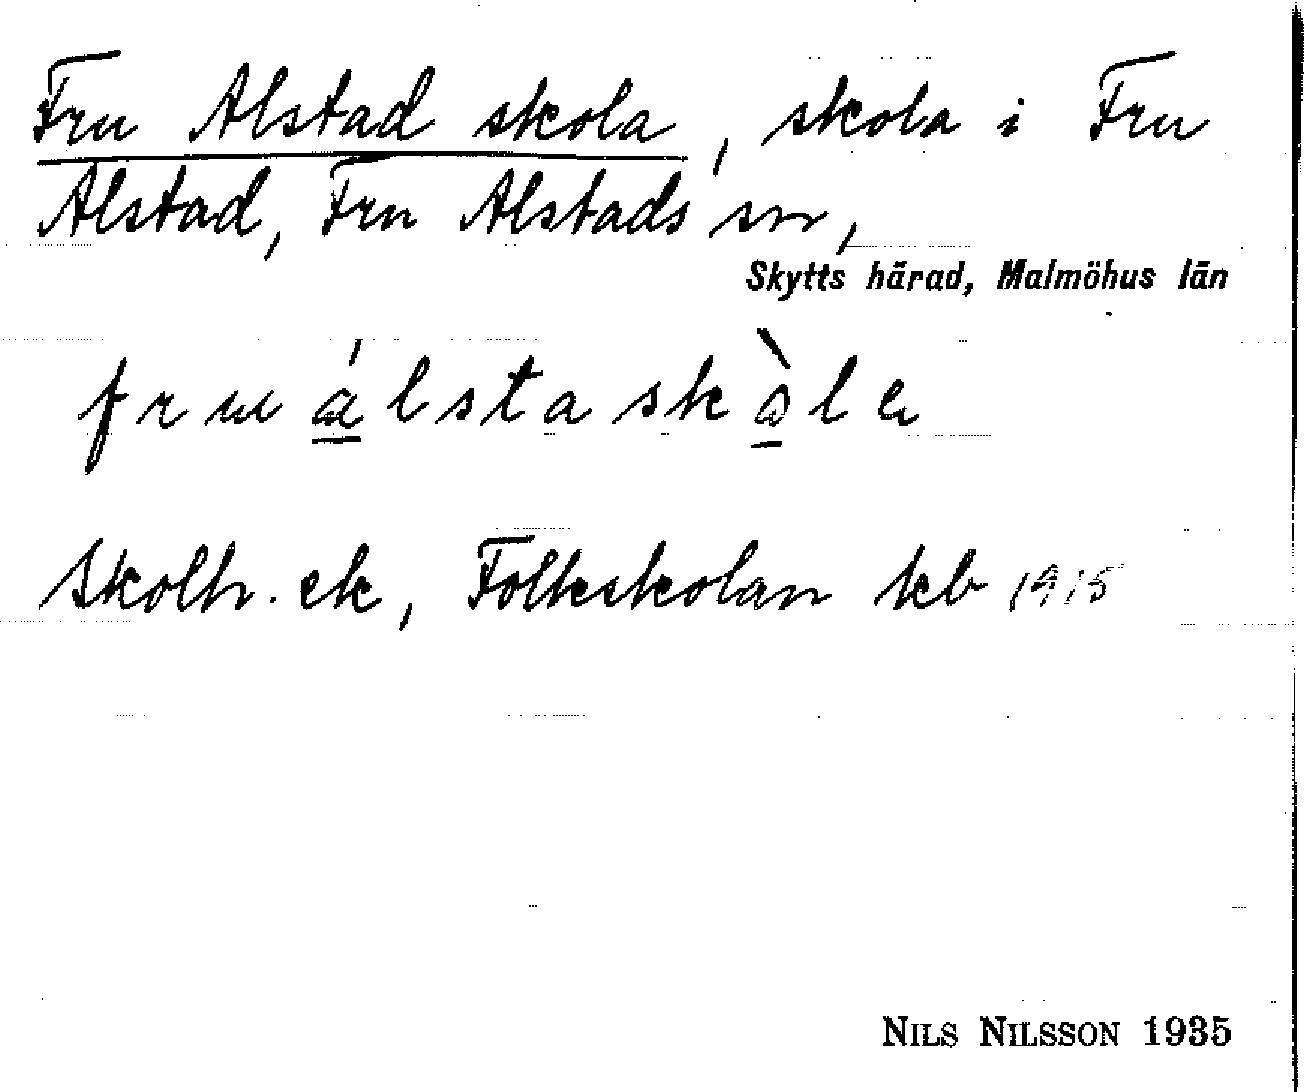 Fru Alstad skola, skola i Fru
Alstad, Fru Alstads sn,
Skytts härad, Malmöhus län
fru álstaskòla
Skolh. ek, Folkskolan kb 1915
NILS NILSSON 1935